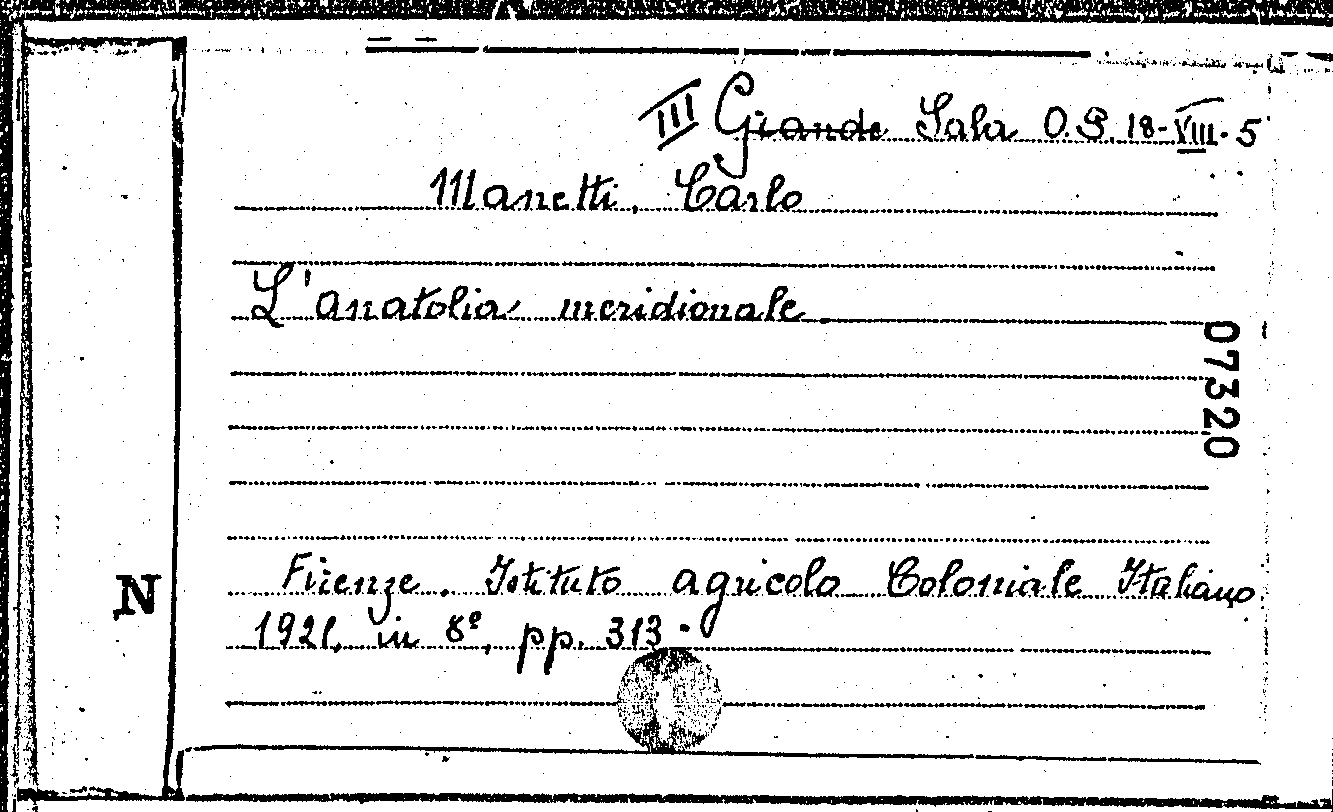 III Grande Sala O.P. 18-VIII-5
Manetti, Carlo
L'anatolia meridionale
07320
Firenze. Istituto agricolo Coloniale Italiano
N
1921, in 8º, pp. 313.